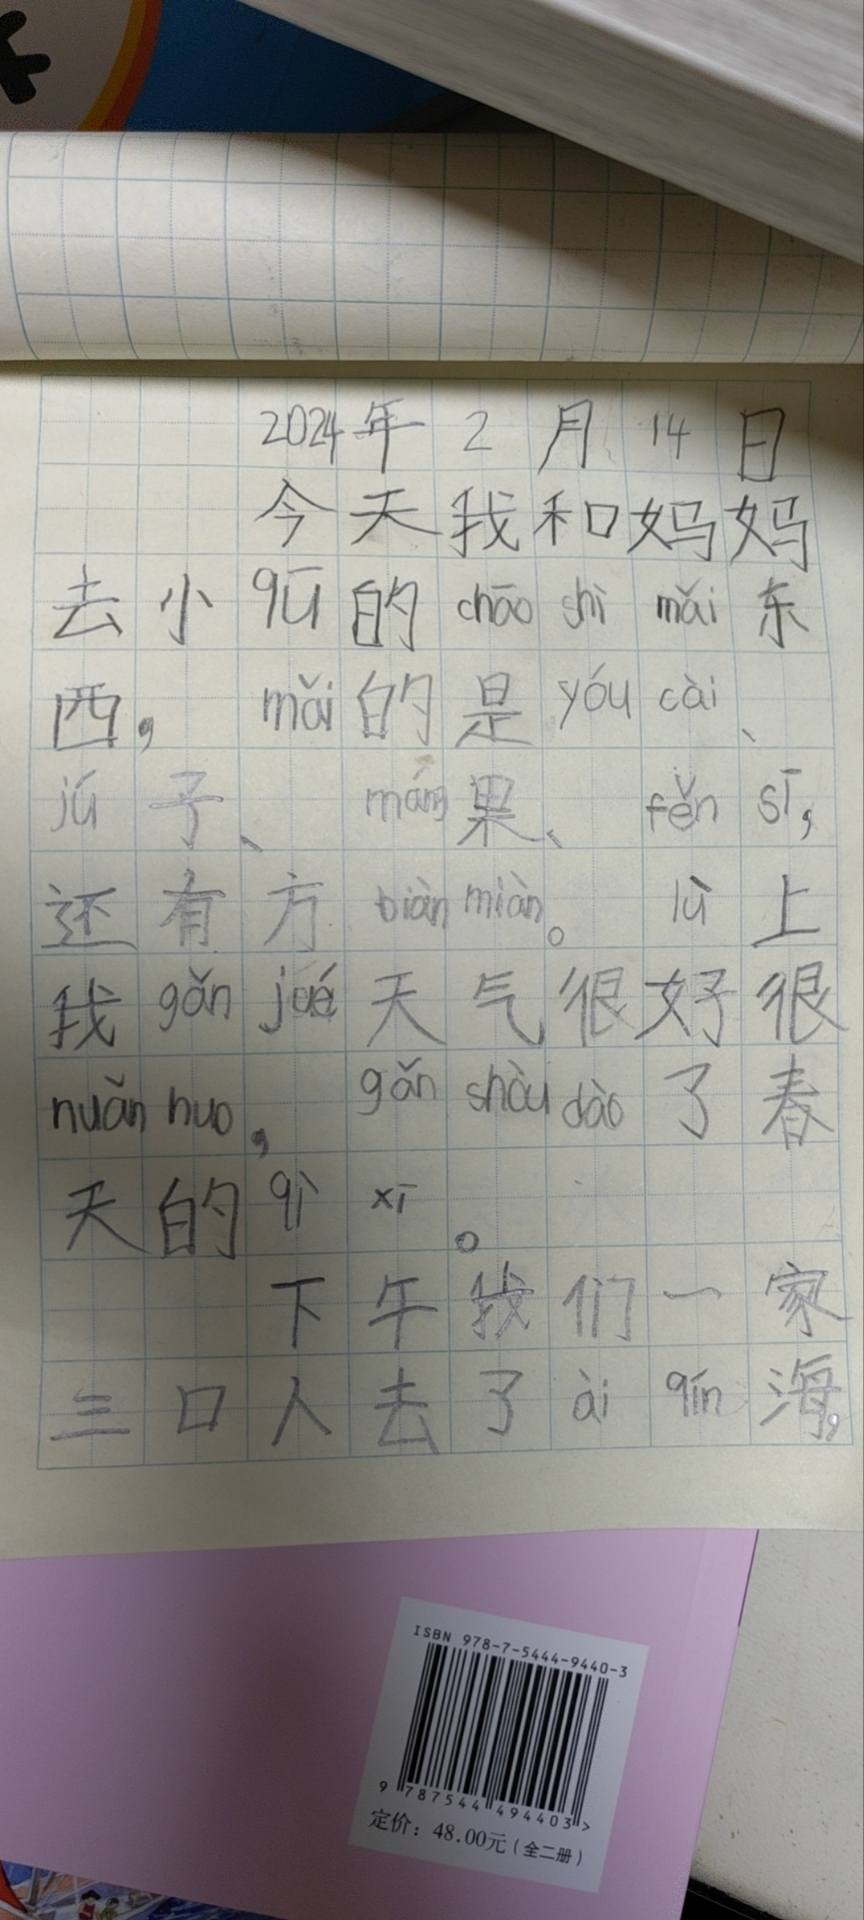 2024年2月14日
今天我和妈妈
去小qū的chāo shì mǎi东
西，mǎi的是yóu cài、
jú子、máng果、fěn sī，
还有方biàn miàn。lù上
我gǎn jué天气很好很
nuǎn huo，gǎn shòu dào了春
天的qì xī。
下午我们一家
三口人去了ài qín海，
ISBN 978-7-5444-9440-3
9 787544 494403 >
定价：48.00元（全二册）